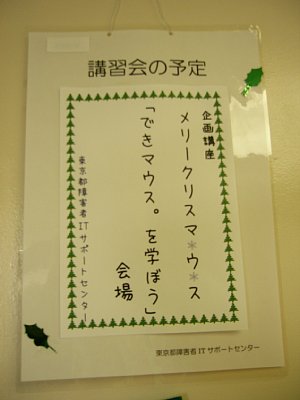 講習会の予定
企画講座
メリークリスマ＊ウ＊ス
「できマウス。を学ぼう」
会場
東京都障害者ITサポートセンター
東京都障害者ITサポートセンター